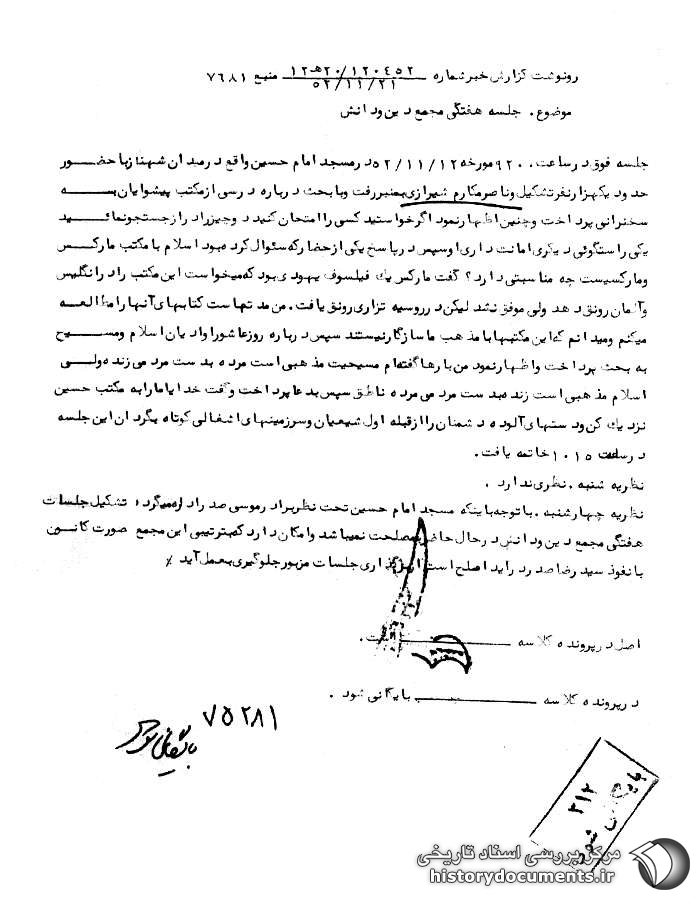 رونوشت گزارش خبر شماره ۱۲۰۴۵۲/۲۰هـ۱۲ منبع ۷۶۸۱
۵۲/۱۱/۲۱
موضوع . جلسه هفتگی مجمع دین و دانش
جلسه فوق در ساعت . ۹۲۰ مورخه ۵۲/۱۱/۱۲ در مسجد امام حسین واقع در میدان شهناز با حضور
حدود یکهزار نفر تشکیل و ناصر مکارم شیرازی بمنبر رفت و با بحث درباره درسی از مکتب پیشوایان به
سخنرانی پرداخت و چنین اظهار نمود اگر خواستید کسی را امتحان کنید دو چیز را در او جستجو نمائید
یکی راستگوئی دیگری امانت داری او سپس در پاسخ یکی از حضار که سئوال کرده بود اسلام با مکتب مارکس
و مارکسیست چه مناسبتی دارد ؟ گفت مارکس یك فیلسوف یهودی بود که میخواست این مکتب را در انگلیس
و آلمان رونق دهد ولی موفق نشد لیکن در روسیه تزاری رونق یافت . من مدتهاست کتابهای آنها را مطالعه
میکنم و میدانم که این مکتبها با مذهب ما سازگار نیستند سپس درباره روز عاشورا و ادیان اسلام و مسیح
به بحث پرداخت و اظهار نمود من بارها گفته ام مسیحیت مذهبی است مرده بدست مردمی زنده ولی
اسلام مذهبی است زنده بدست مردمی مرده ناطق سپس بدعا پرداخت و گفت خدایا ما را به مکتب حسین
نزدیك کن و دستهای آلوده دشمنان را از قبله اول شیعیان و سرزمینهای اشغالی کوتاه بگردان این جلسه
در ساعت ۱۰۱۵ خاتمه یافت .
نظریه شنبه . نظری ندارد .
نظریه چهارشنبه . با توجه باینکه مسجد امام حسین تحت نظر برادر موسی صدر اداره میگردد تشکیل جلسات
هفتگی مجمع دین و دانش در حال حاضر بمصلحت نمیباشد و امکان دارد که بترتیبی این مجمع صورت کانون
با نفوذ سید رضا صدر درآید اصلح است از برگذاری جلسات مزبور جلوگیری بعمل آید ٪
اصل در پرونده کلاسه است .
در پرونده کلاسه بایگانی شود .
۷۵۲۸۱
بایگانی شود
۳۱۲
مرکز بررسی اسناد تاریخی
historydocuments.ir